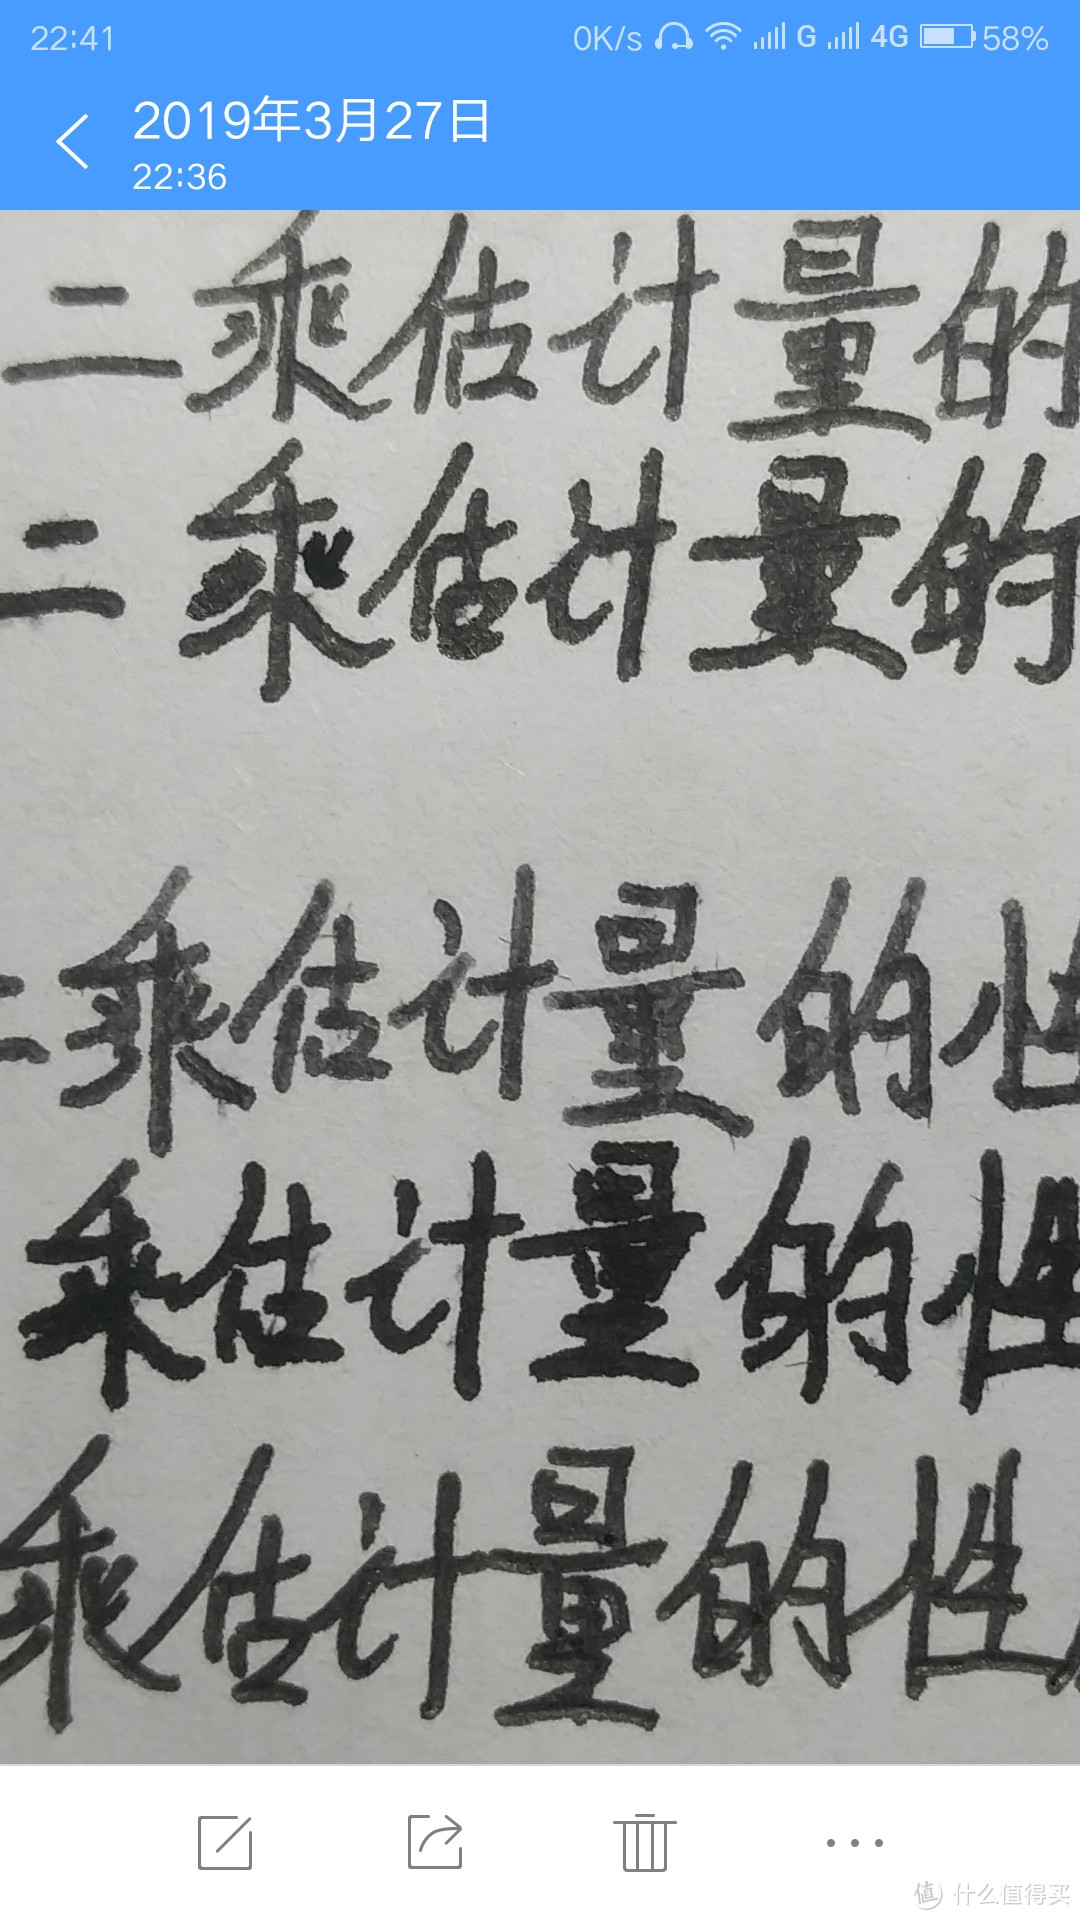 22:41 0K/s G 4G 58%
2019年3月27日
22:36
二乘估计量的
二乘估计量的
二乘估计量的性
乘估计量的性
乘估计量的性
值 什么值得买